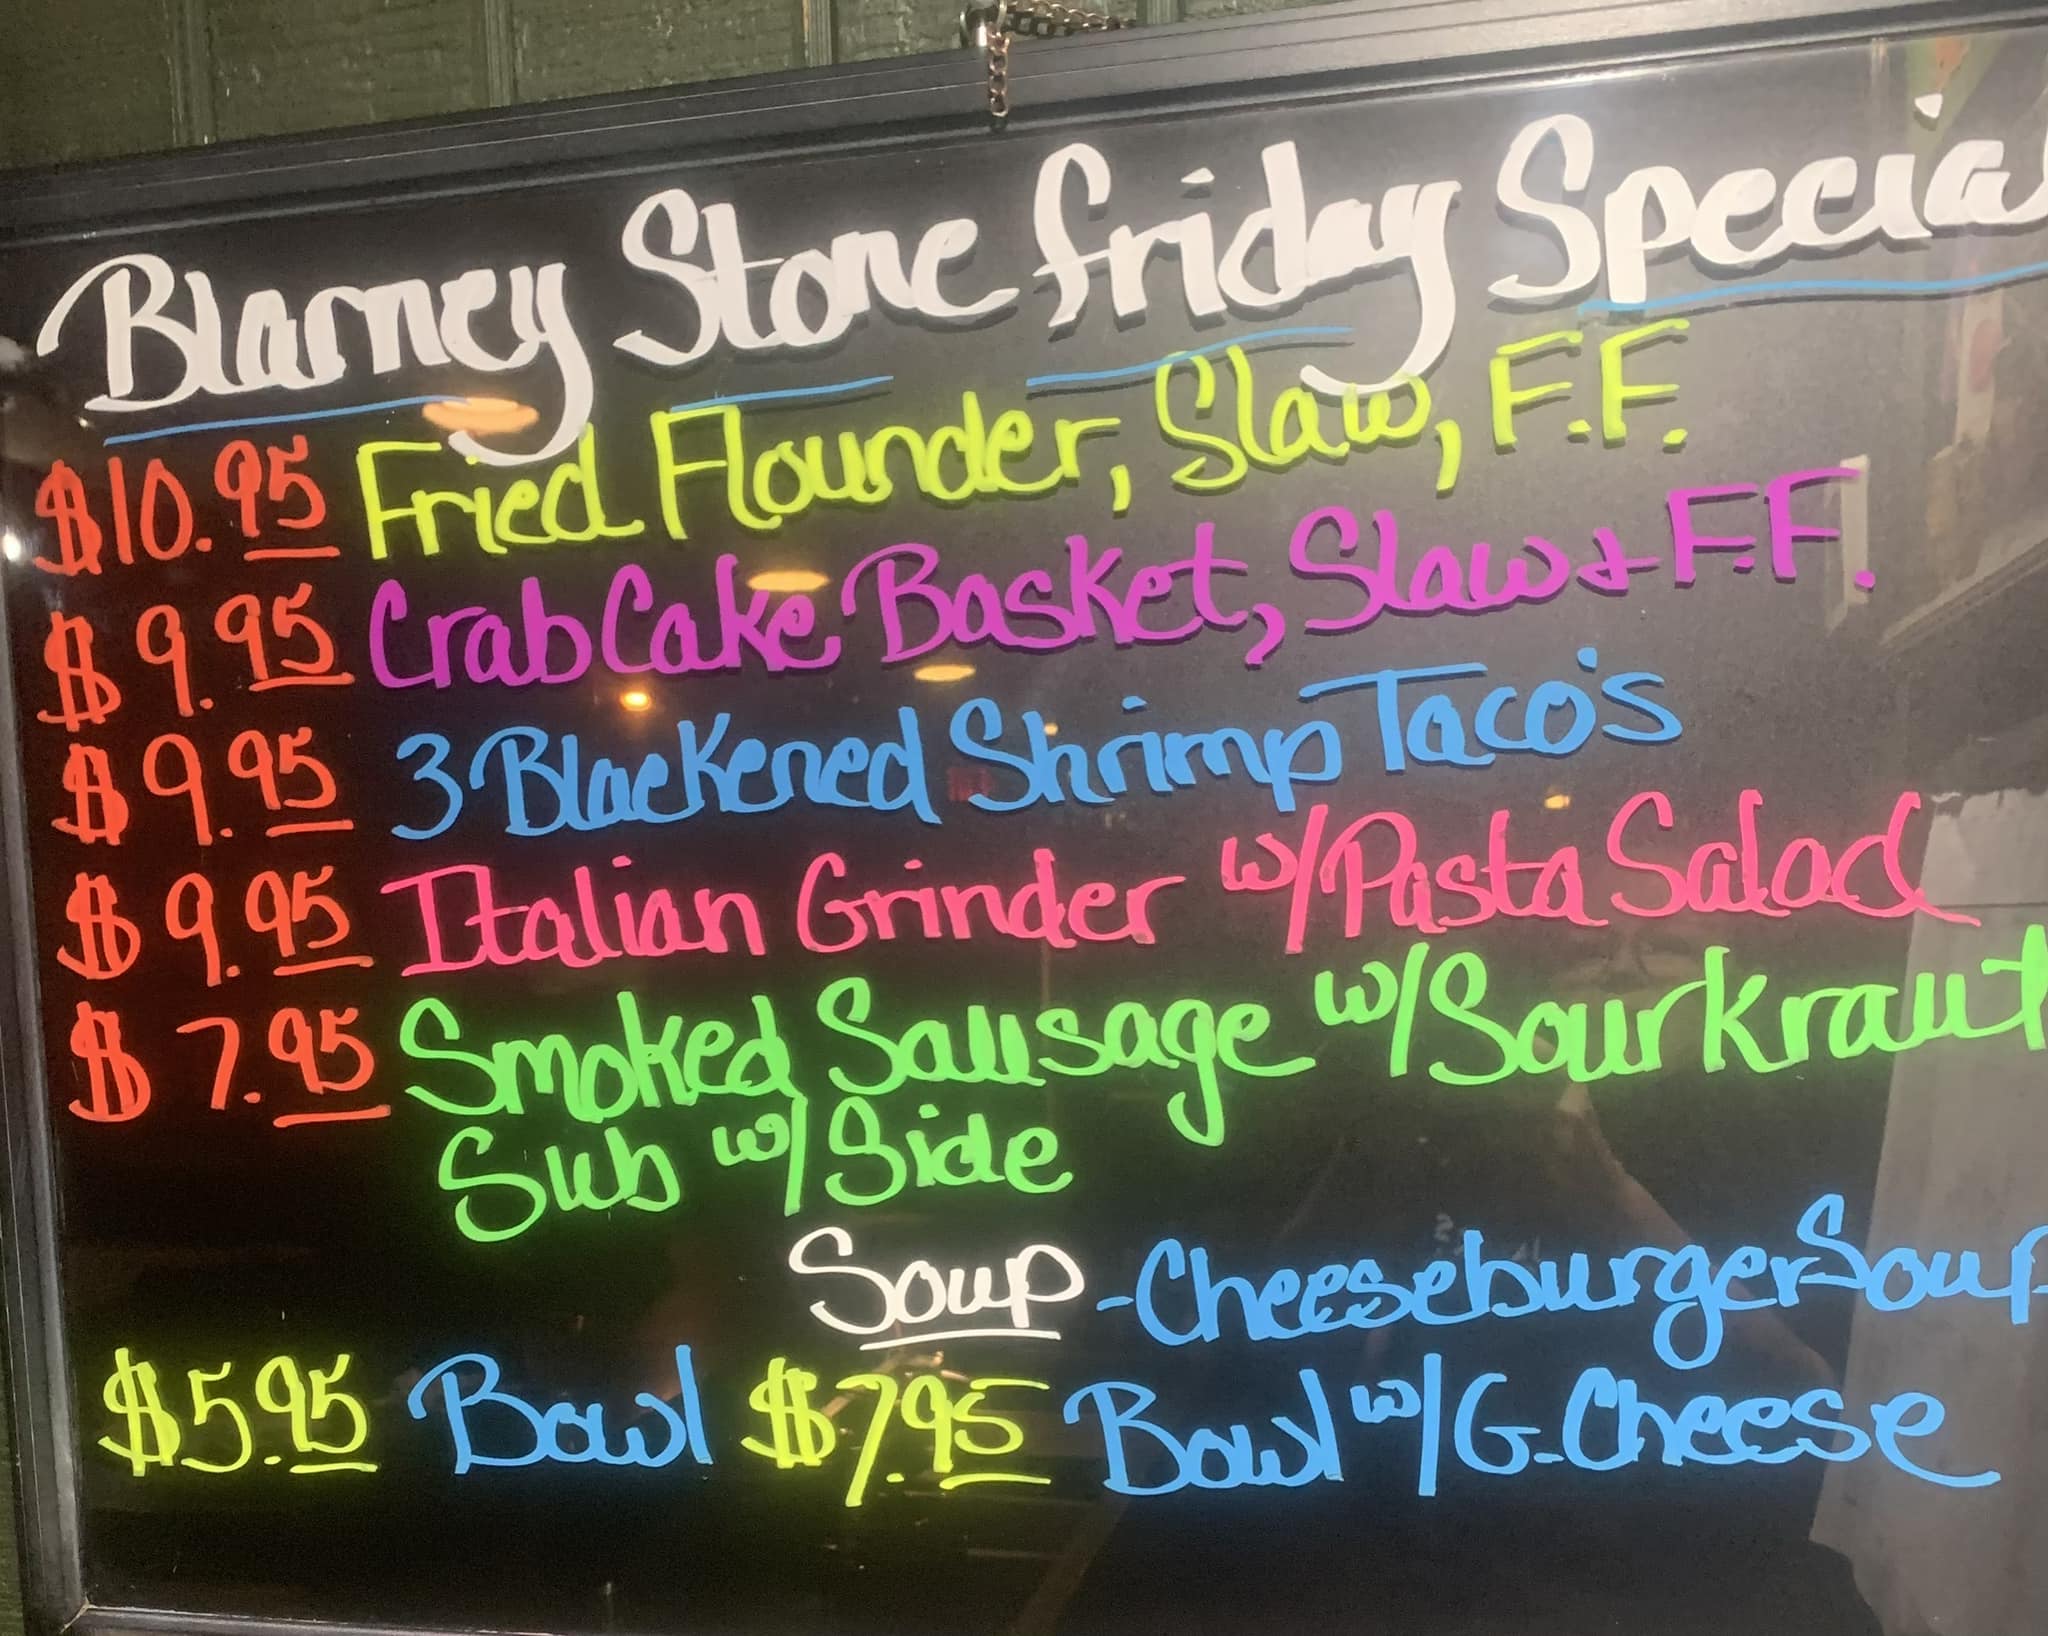 Blarney Stone Friday Special
$10.95 Fried Flounder, Slaw, F.F.
$9.95 Crab Cake Basket, Slaw & F.F.
$9.95 3 Blackened Shrimp Taco's
$9.95 Italian Grinder w/Pasta Salad
$7.95 Smoked Sausage w/Sourkraut
Sub w/Side
Soup - Cheeseburger Soup
$5.95 Bowl $7.95 Bowl w/G. Cheese